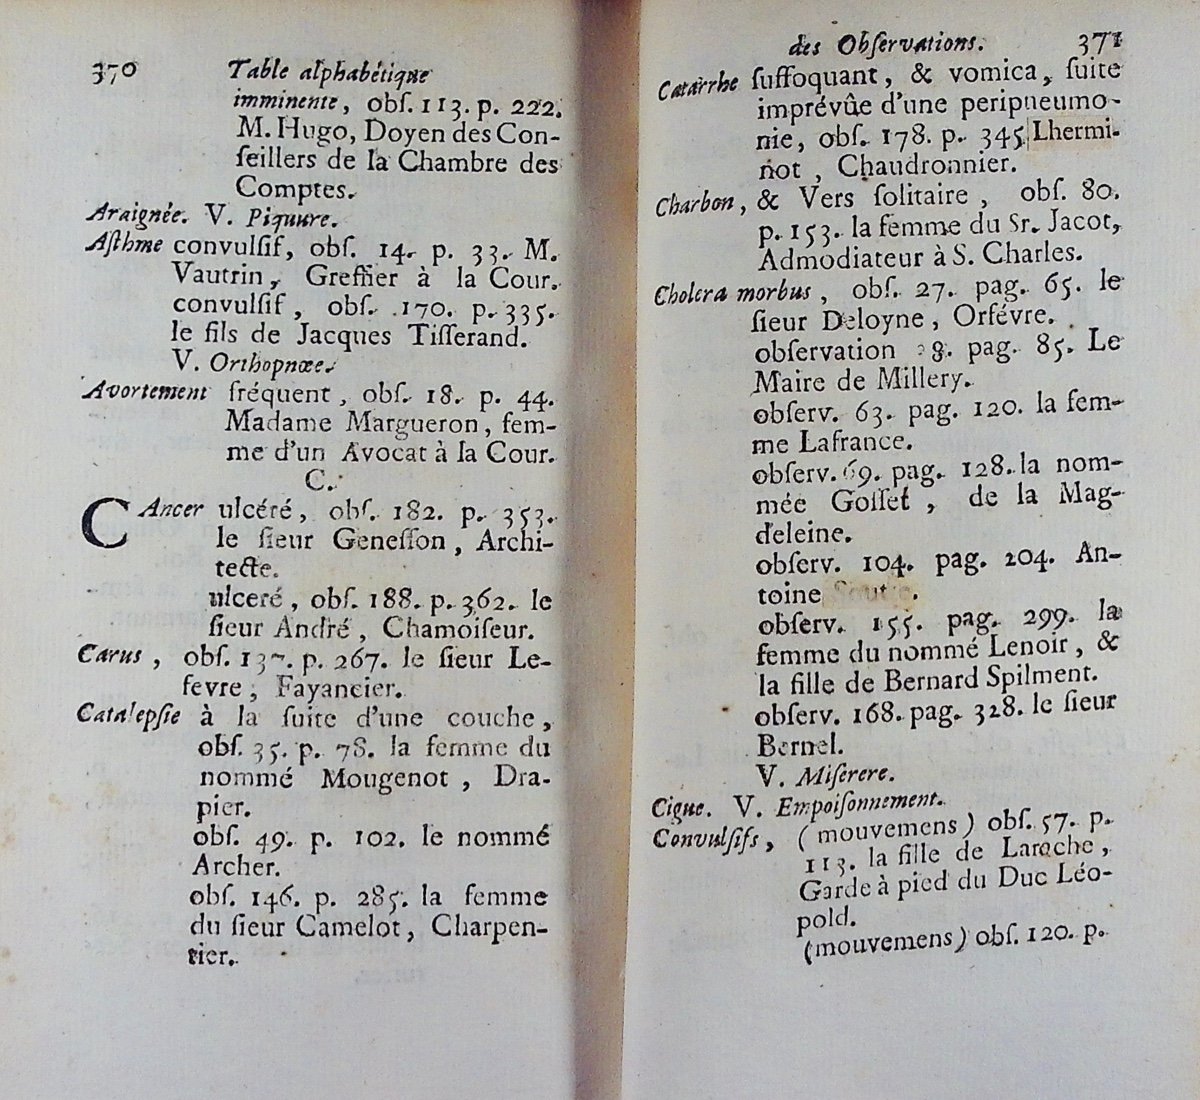 370 Table alphabétique
imminente, obſ. 113. p. 222.
M. Hugo, Doyen des Con-
ſeillers de la Chambre des
Comptes.
Araignée. V. Piquure.
Aſthme convulſif, obſ. 14. p. 33. M.
Vautrin, Greffier à la Cour.
convulſif, obſ. 170. p. 335.
le fils de Jacques Tiſſerand.
V. Orthopnœe.
Avortement fréquent, obſ. 18. p. 44.
Madame Margueron, fem-
me d'un Avocat à la Cour.
C.
CAncer ulcéré, obſ. 182. p. 353.
le ſieur Geneſſon, Archi-
tecte.
ulceré, obſ. 188. p. 362. le
ſieur André, Chamoiſeur.
Carus, obſ. 137. p. 267. le ſieur Le-
fevre, Fayancier.
Catalepſie à la ſuite d'une couche,
obſ. 35. p. 78. la femme du
nommé Mougenot, Dra-
pier.
obſ. 49. p. 102. le nommé
Archer.
obſ. 146. p. 285. la femme
du ſieur Camelot, Charpen-
tier.
des Obſervations. 371
Catarrhe ſuffoquant, & vomica, ſuite
imprévûe d'une peripneumo-
nie, obſ. 178. p. 345. Lhermi-
not, Chaudronnier.
Charbon, & Vers ſolitaire, obſ. 80.
p. 153. la femme du Sr. Jacot,
Admodiateur à S. Charles.
Cholera morbus, obſ. 27. pag. 65. le
ſieur Deloyne, Orfévre.
obſervation 8. pag. 85. Le
Maire de Millery.
obſerv. 63. pag. 120. la fem-
me Lafrance.
obſerv. 69. pag. 128. la nom-
mée Goſſet, de la Mag-
deleine.
obſerv. 104. pag. 204. An-
toine
obſerv. 155. pag. 299. la
femme du nommé Lenoir, &
la fille de Bernard Spilment.
obſerv. 168. pag. 328. le ſieur
Bernel.
V. Miſerere.
Cigue. V. Empoiſonnement.
Convulſifs, (mouvemens) obſ. 57. p.
113. la fille de Laroche,
Garde à pied du Duc Léo-
pold.
(mouvemens) obſ. 120. p.